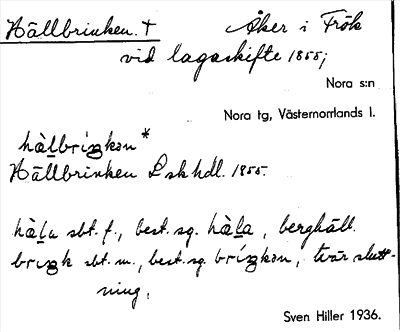 Hällbrinken. † Åker i Frök
vid lagaskifte 1855;
Nora s:n
Nora tg, Västernorrlands l.
hàḷbríŋkən*
Hällbrinken L sk hdl. 1855.
hàḷu sbt. f., best. sg. hàḷa, berghäll.
briŋk sbt. m., best. sg. bríŋkən, tvär slutt-
ning.
Sven Hiller 1936.